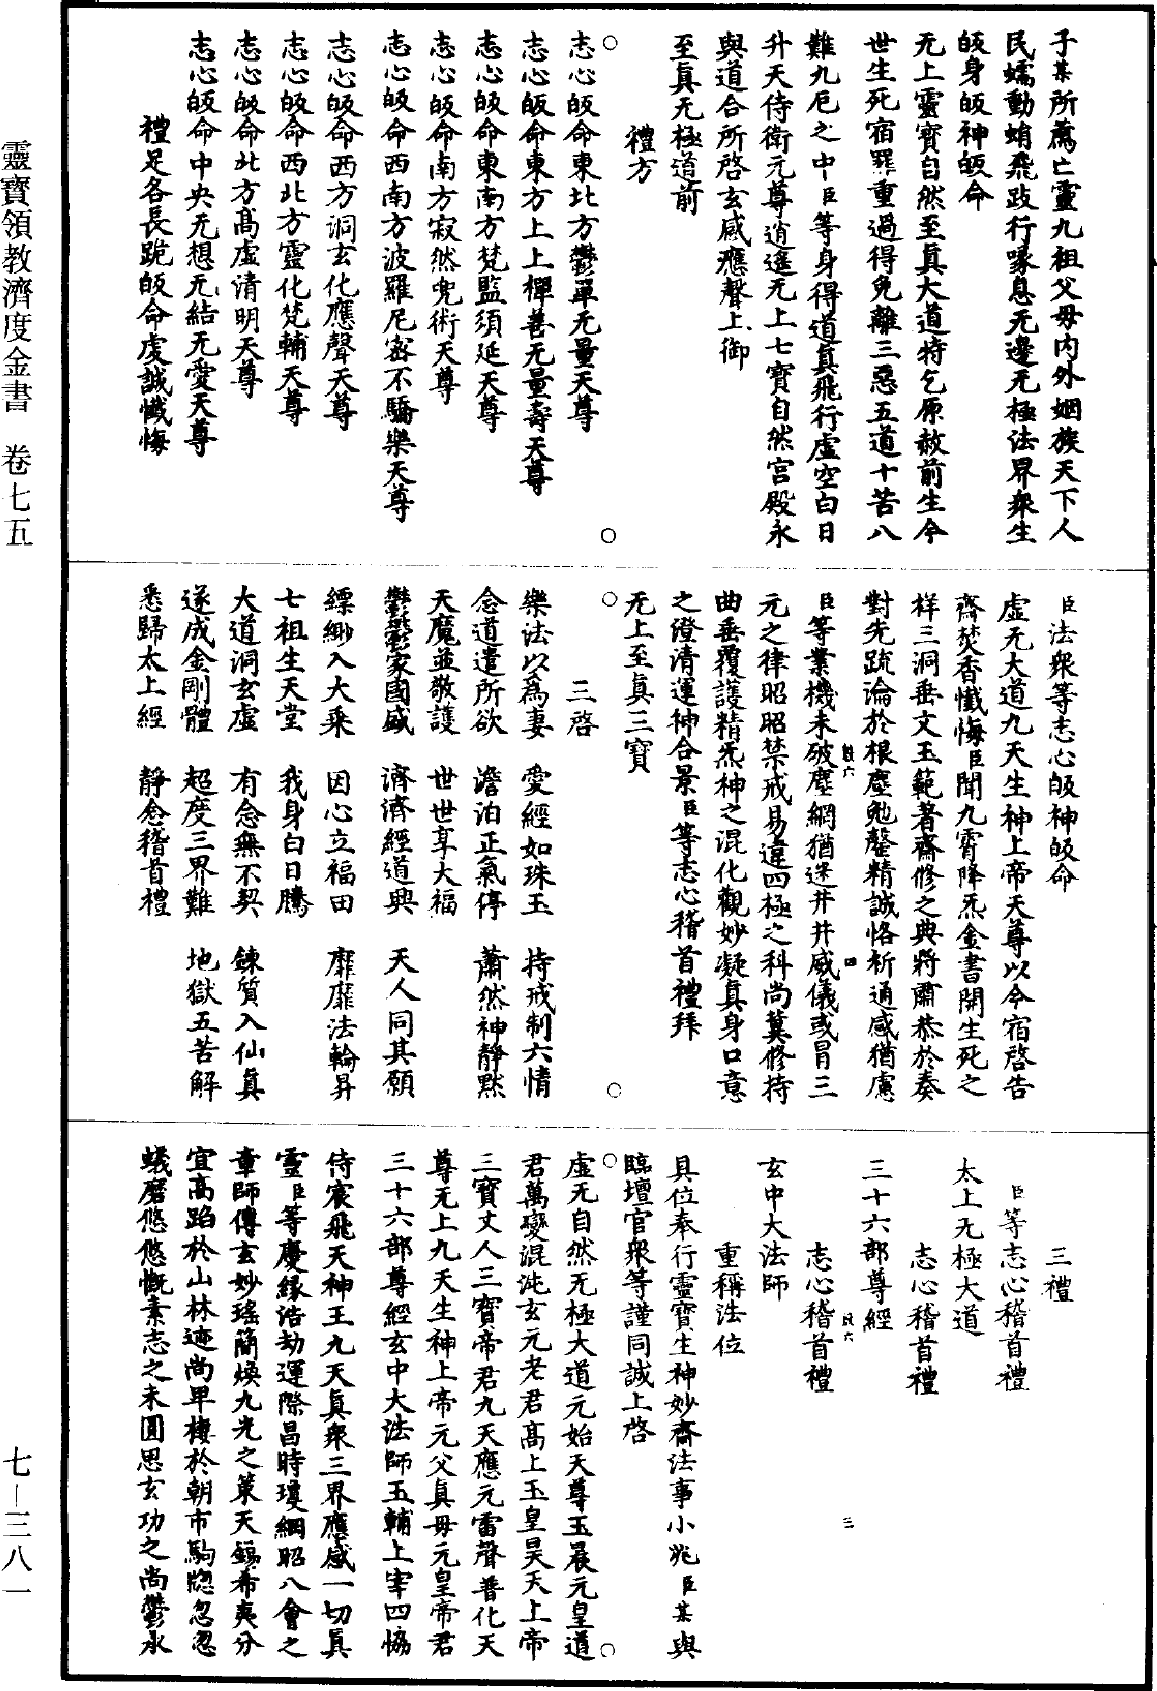 靈寶領教濟度金書　卷七五
七—三八一
子某所薦亡靈九祖父母內外姻族天下人
民蠕動蛸飛跂行喙息无邊无極法界衆生
皈身皈神皈命
无上靈寶自然至真大道特乞原赦前生今
世生死宿罪重過得免離三惡五道十苦八
難九厄之中臣等身得道真飛行虛空白日
升天侍衛元尊逍遙无上七寶自然宮殿永
與道合所啓玄感應聲上御
至真无極道前
禮方
○志心皈命東北方鬱單无量天尊○
志心皈命東方上上禪善无量壽天尊
志心皈命東南方梵監須延天尊
志心皈命南方寂然兜術天尊
志心皈命西南方波羅尼密不驕樂天尊
志心皈命西方洞玄化應聲天尊
志心皈命西北方靈化梵輔天尊
志心皈命北方高虛清明天尊
志心皈命中央无想无結无愛天尊
禮足各長跪皈命虔誠懺悔
臣法衆等志心皈神皈命
虛无大道九天生神上帝天尊以今宿啓告
齋焚香懺悔臣聞九霄降炁金書開生死之
祥三洞垂文玉範著齋修之典將肅恭於奏
對先疏瀹於根塵勉罄精誠恪祈通感猶慮
臣等業機未破塵網猶迷井井威儀或冒三
元之律昭昭禁戒易違四極之科尚冀修持
曲垂覆護精炁神之混化觀妙凝真身口意
之澄清運神合景臣等志心稽首禮拜
无上至真三寶
○三啓○
樂法以為妻　愛經如珠玉　持戒制六情
念道遣所欲　澹泊正氣停　蕭然神靜默
天魔並敬護　世世享大福
鬱鬱家國盛　濟濟經道興　天人同其願
縹緲入大乘　因心立福田　靡靡法輪昇
七祖生天堂　我身白日騰
大道洞玄虛　有念無不契　鍊質入仙真
遂成金剛體　超度三界難　地獄五苦解
悉歸太上經　靜念稽首禮
三禮
臣等志心稽首禮
太上无極大道
志心稽首禮
三十六部尊經
志心稽首禮
玄中大法師
重稱法位
具位奉行靈寶生神妙齋法事小兆臣某與
臨壇官衆等謹同誠上啓
○虛无自然无極大道元始天尊玉晨元皇道○
君萬變混沌玄元老君高上玉皇昊天上帝
三寶丈人三寶帝君九天應元雷聲普化天
尊无上九天生神上帝元父真母元皇帝君
三十六部尊經玄中大法師玉輔上宰四協
侍宸飛天神王九天真衆三界應感一切真
靈臣等慶緣浩劫運際昌時瓊綱昭八會之
章師傳玄妙瑤簡煥九光之策天錫希夷分
宜高蹈於山林迹尚卑棲於朝市駒愡忽忽
蟻磨悠悠慨素志之未圓思玄功之尚鬱永